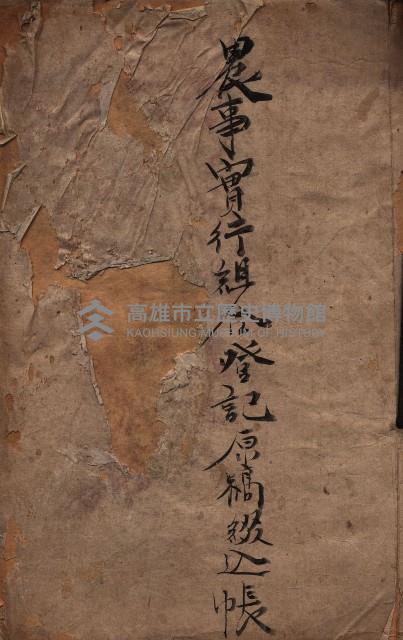 農事實行組合登記原稿綴込帳
高雄市立歷史博物館
KAOHSIUNG MUSEUM OF HISTORY